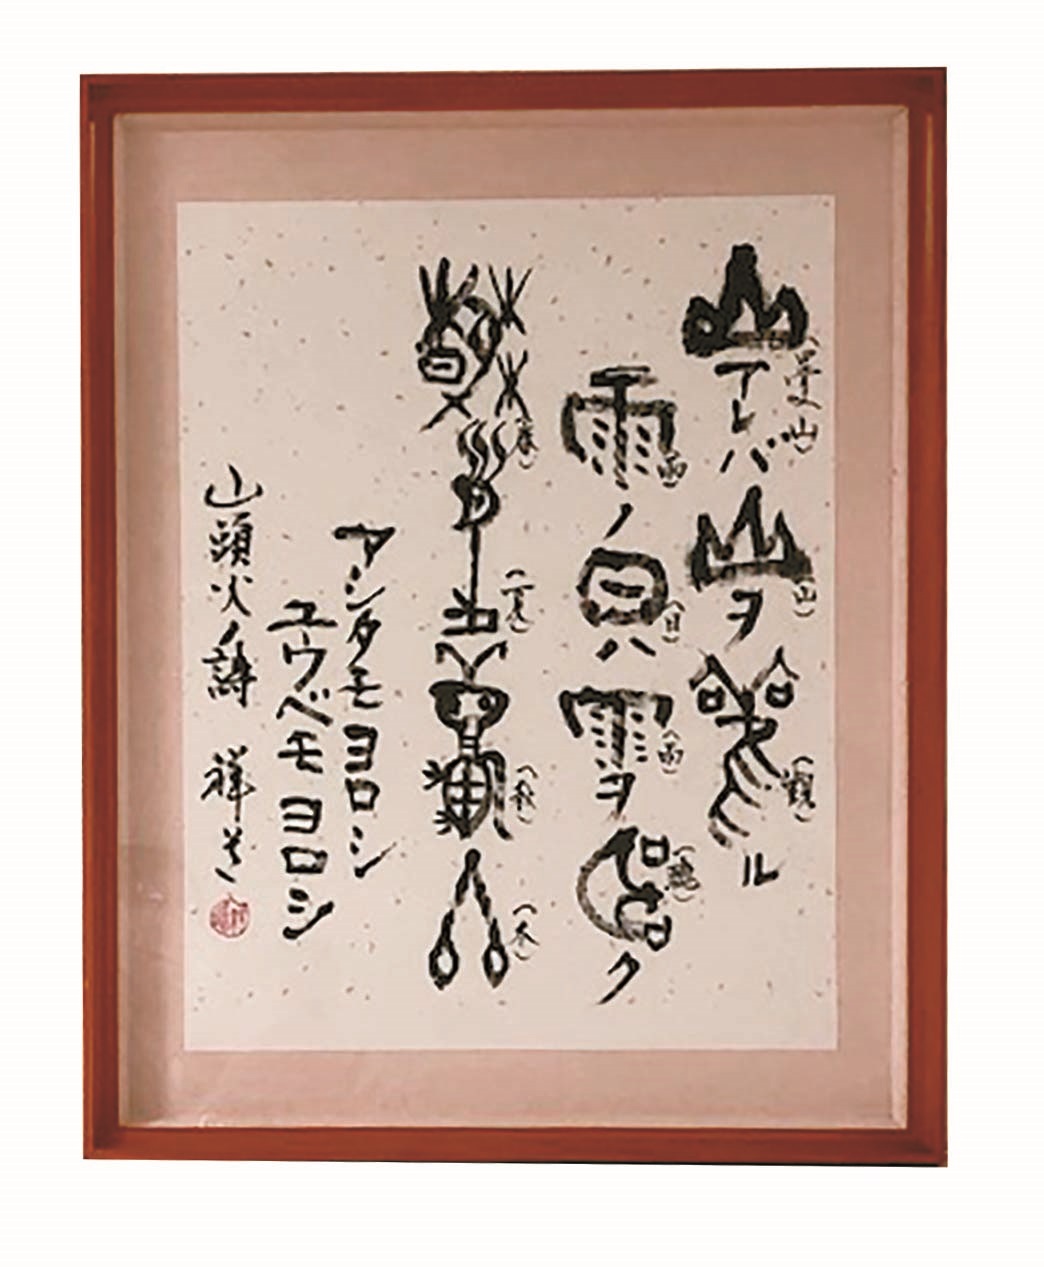 山アレバ山ヲ観ル
雨ノ日ハ雨ヲ聴ク
春夏秋冬
アシタモヨロシ
ユウベモヨロシ
山頭火ノ詩 祥
(山)
(観)
(雨)
(日)
(雨)
(聴)
(春)
(夏)
(秋)
(冬)